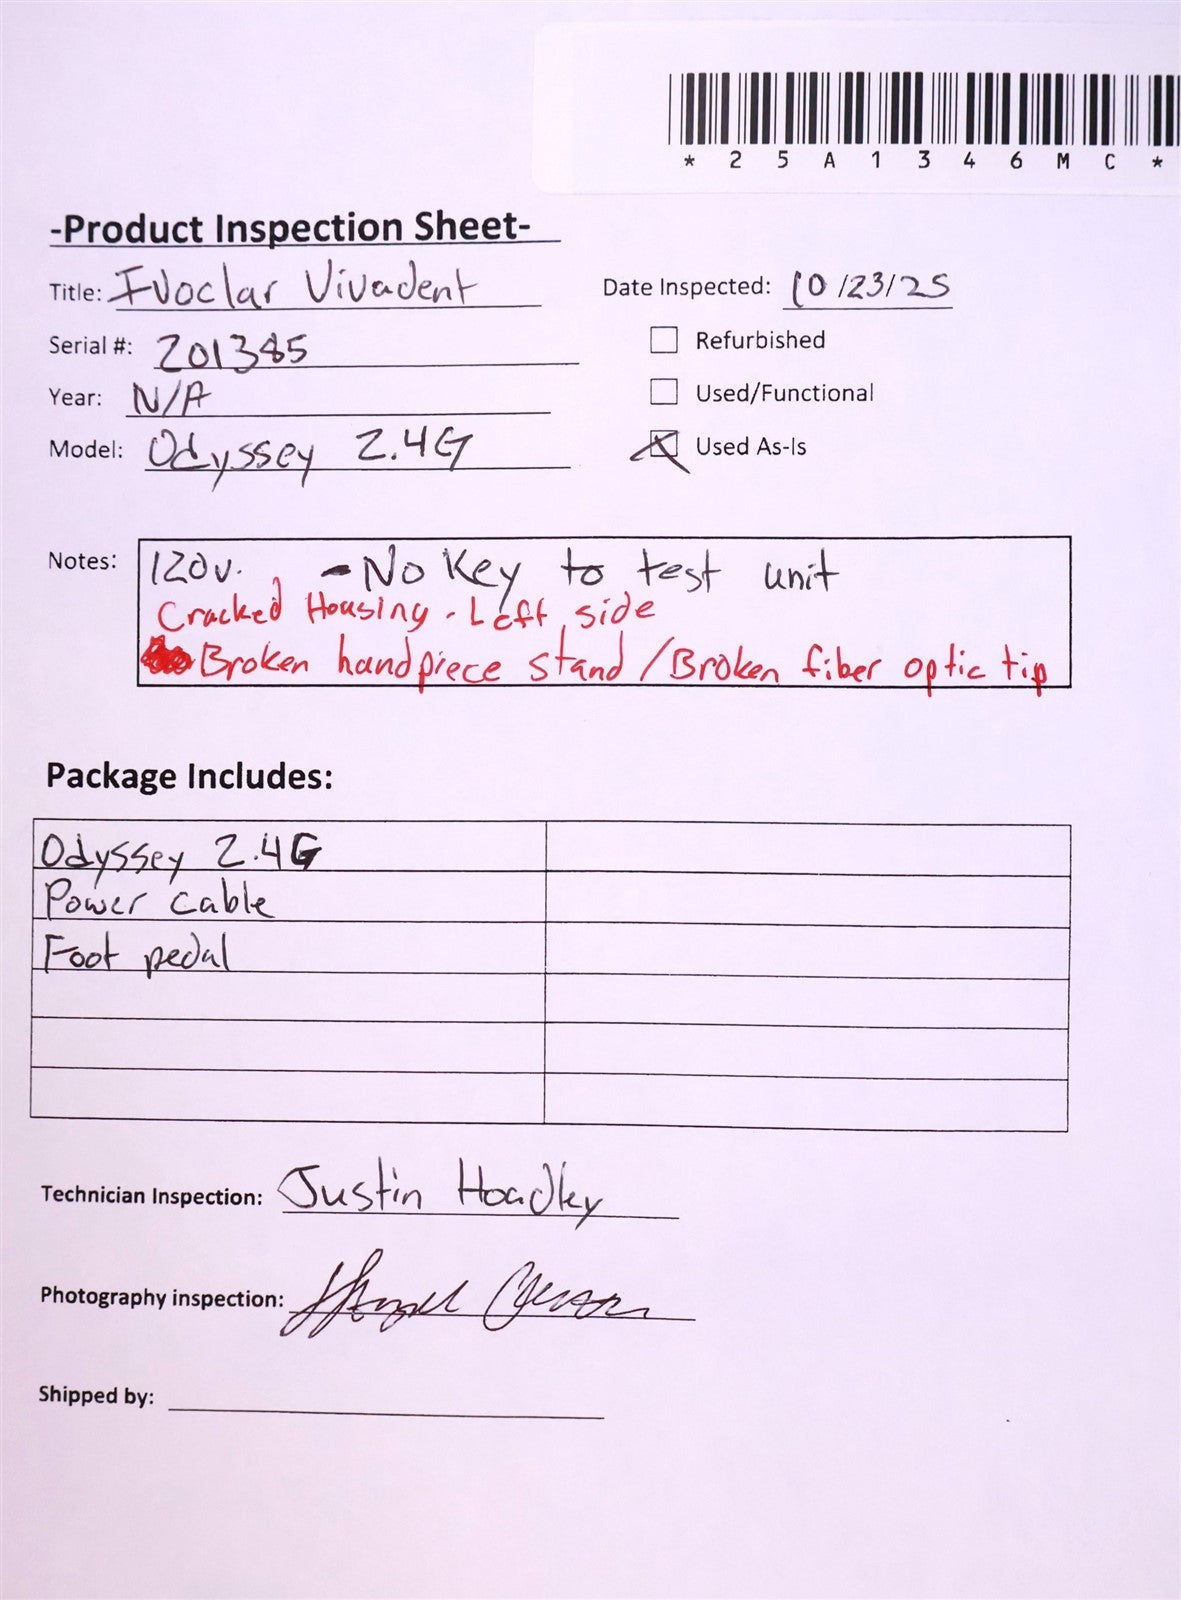 * 2 5 A 1 3 4 6 M C *
-Product Inspection Sheet-
Title: Ivoclar Vivadent
Date Inspected: 10/23/25
Serial #: 201385
Refurbished
Year: N/A
Used/Functional
Model: Odyssey 2.4G
Used As-Is
Notes: 120v. - No Key to test unit
Cracked Housing - Left side
Broken handpiece stand / Broken fiber optic tip
Package Includes:
Odyssey 2.4G
Power cable
Foot pedal
Technician Inspection: Justin Hoadley
Photography inspection:
Shipped by: